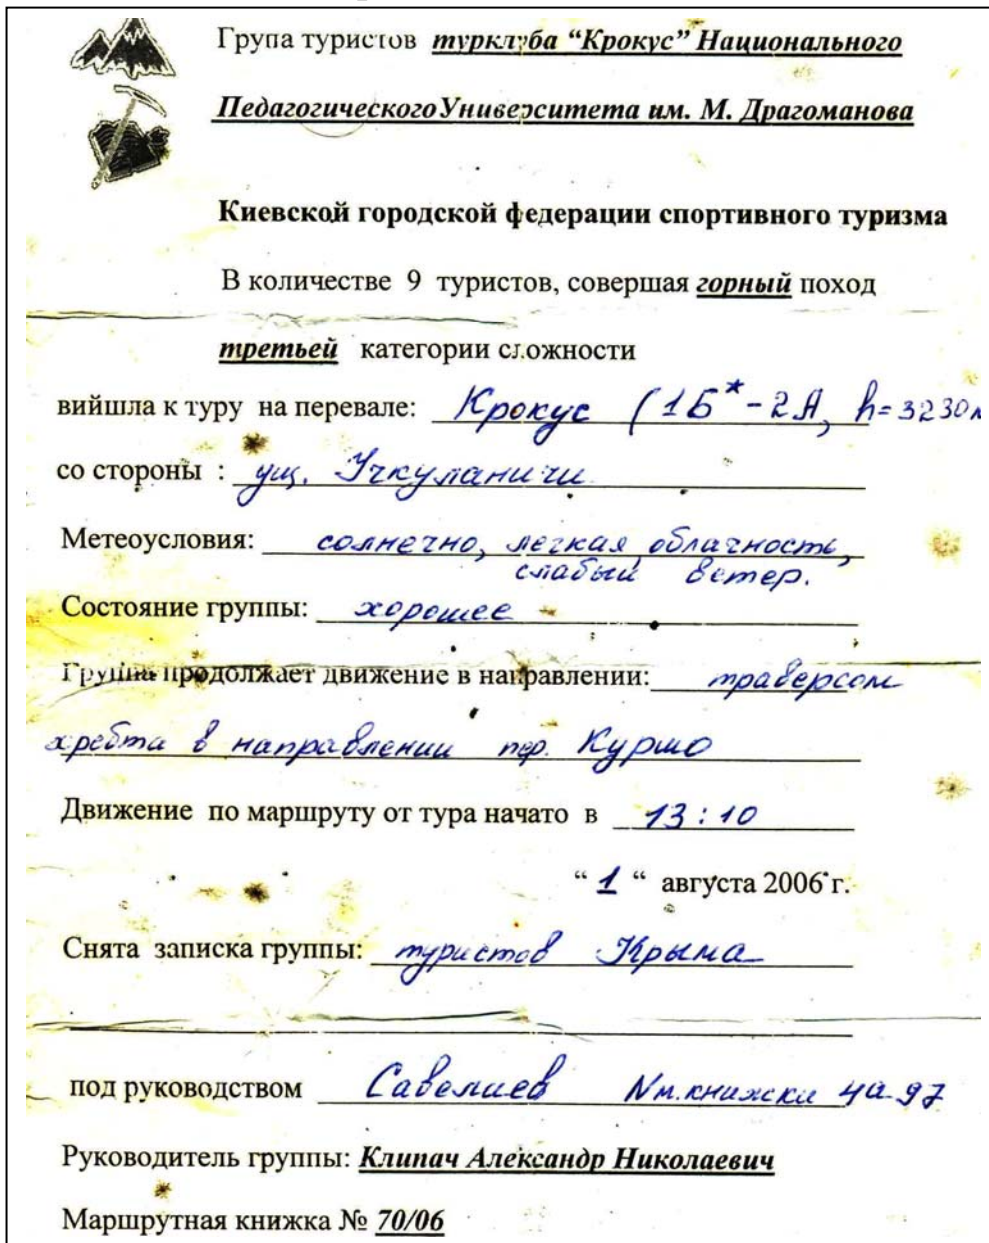 Група туристов турклуба “Крокус” Национального
Педагогического Университета им. М. Драгоманова
Киевской городской федерации спортивного туризма
В количестве 9 туристов, совершая горный поход
третьей категории сложности
вийшла к туру на перевале: Крокус (1Б*-2А, h=3230м
со стороны : ущ. Учкуланичи
Метеоусловия: солнечно, легкая облачность,
слабый ветер.
Состояние группы: хорошее
Группа продолжает движение в направлении: траверсом
хребта в направлении пер. Куршо
Движение по маршруту от тура начато в 13:10
“ 1 “ августа 2006 г.
Снята записка группы: туристов Крыма
под руководством Савелиев №м.книжки 4а-97
Руководитель группы: Клипач Александр Николаевич
Маршрутная книжка № 70/06